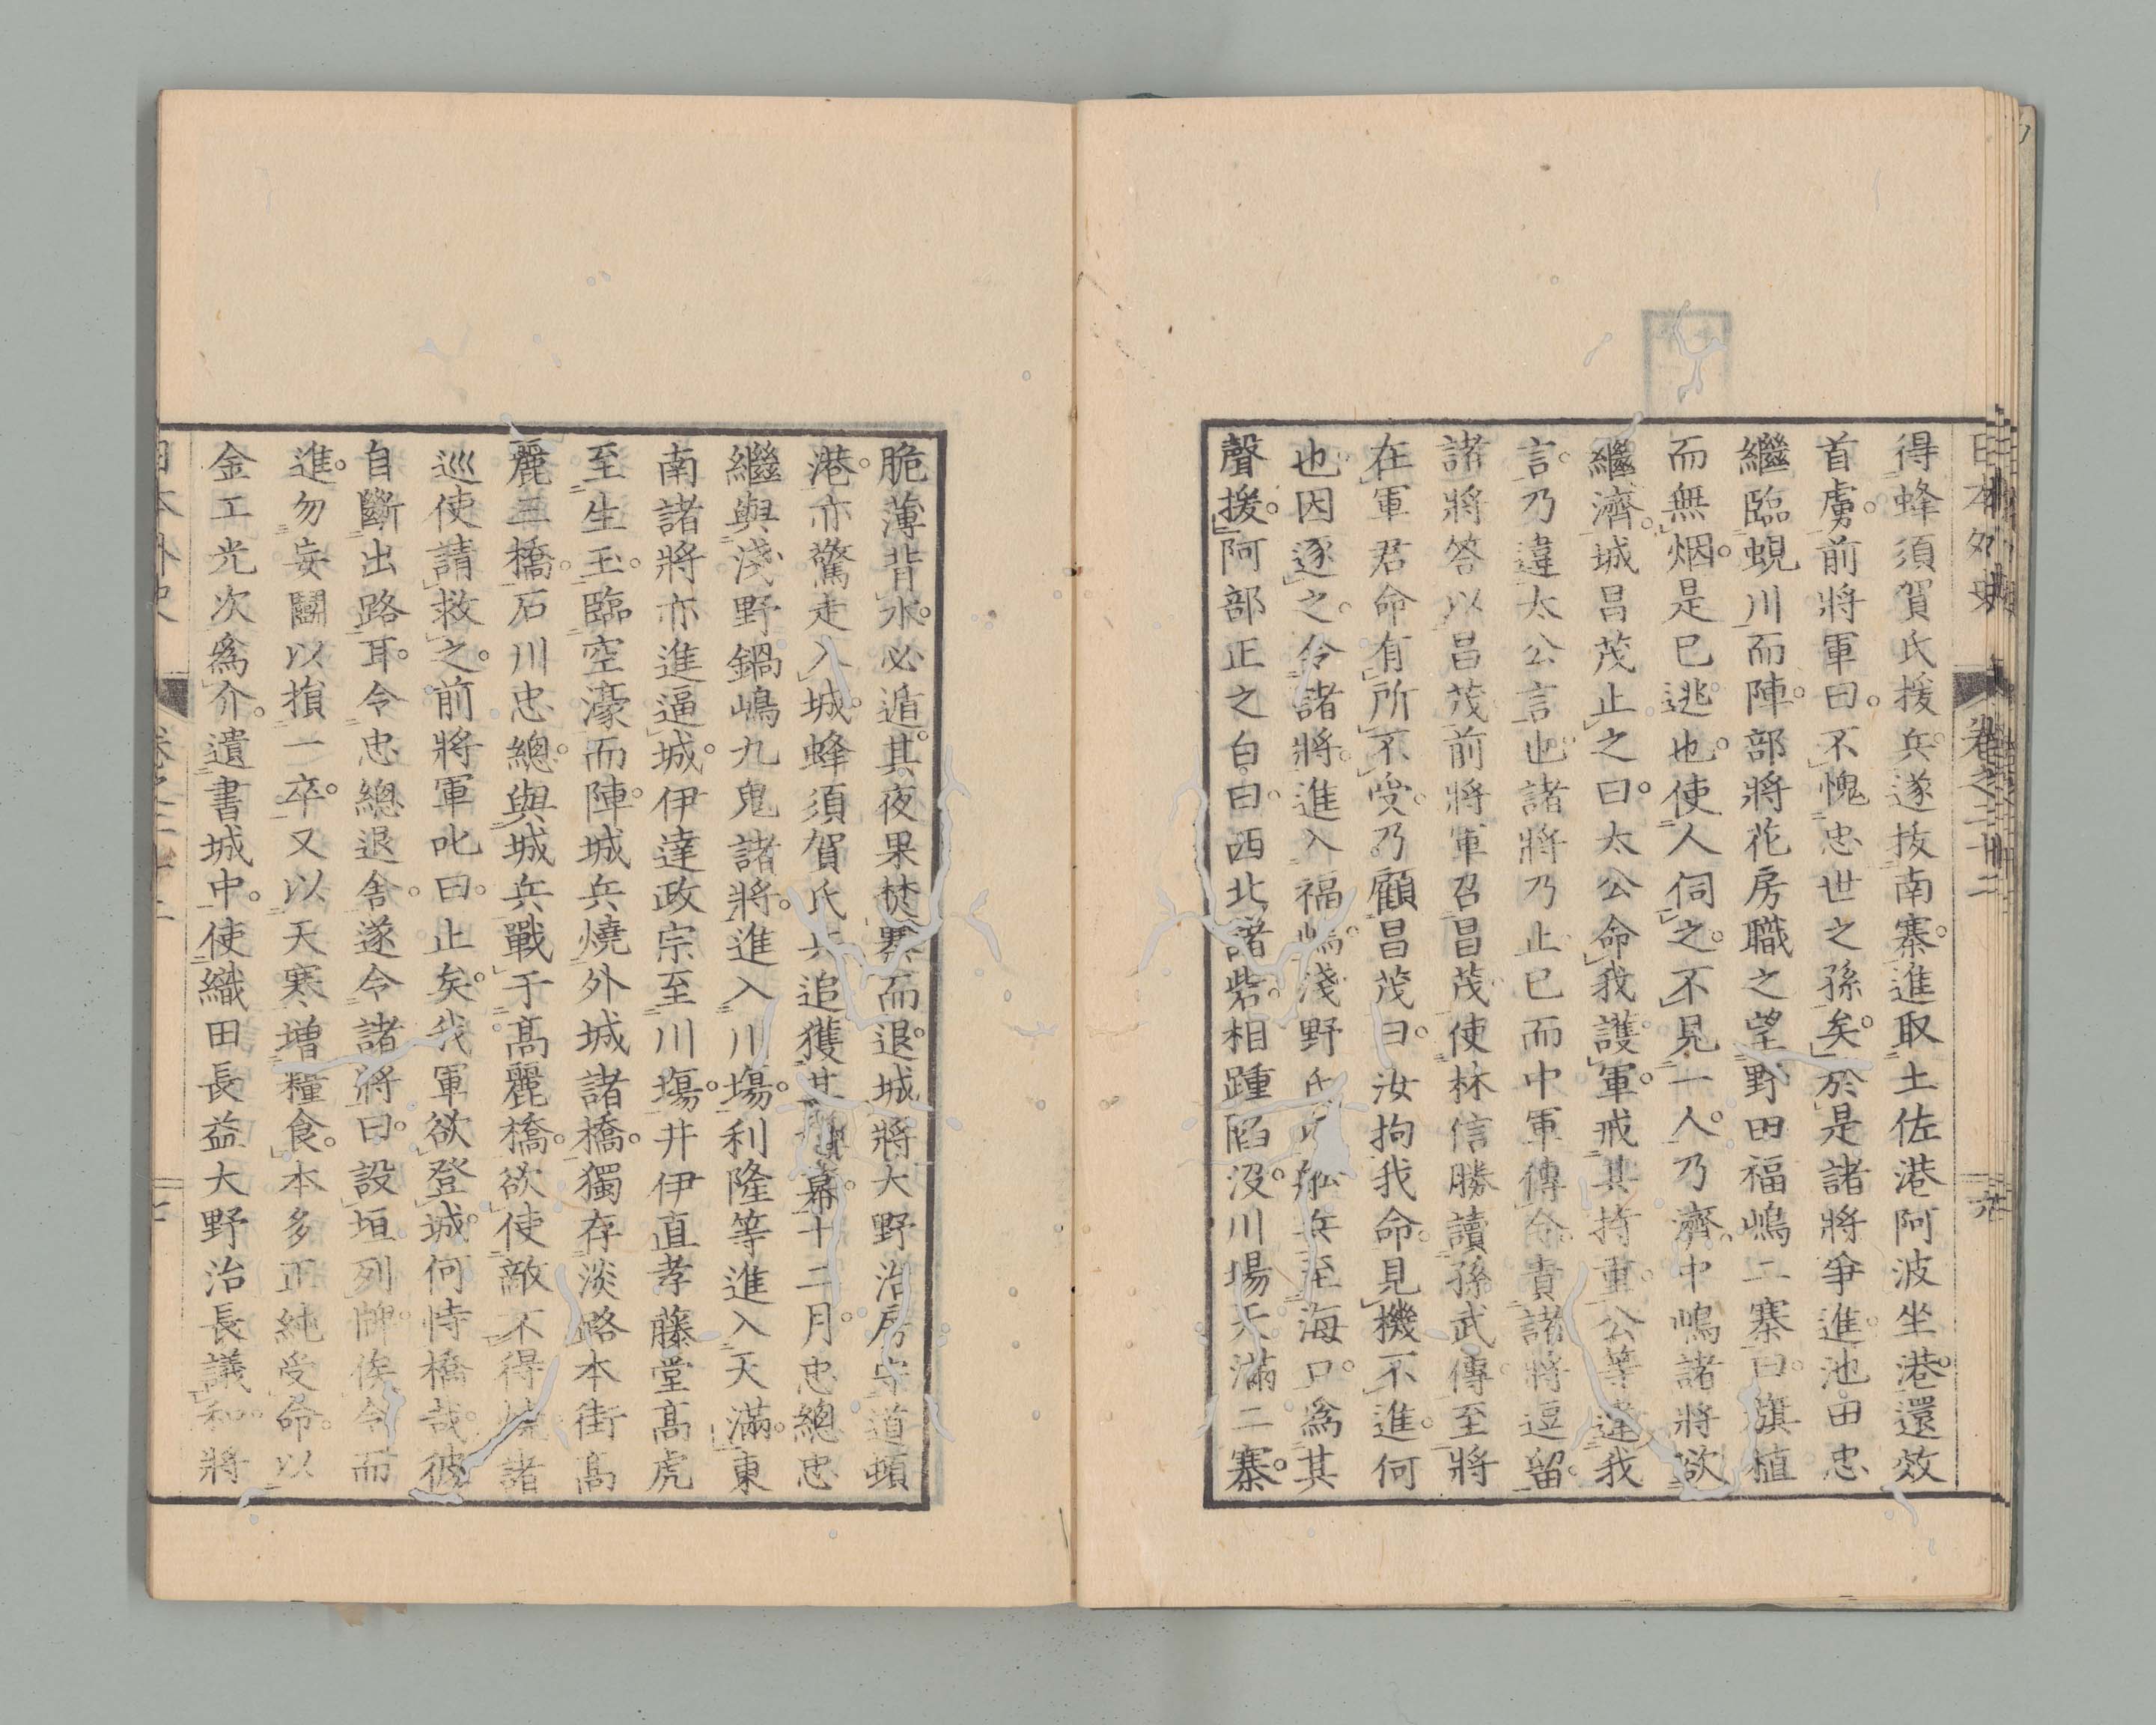 日本外史 卷之二十二
得蜂須賀氏援兵遂拔南寨進取土佐港阿波坐港還效
首虜前將軍曰不愧忠世之孫矣於是諸將爭進池田忠
繼臨蜆川而陣部將花房職之望野田福嶋二寨曰旗植
而無烟是已逃也使人伺之不見一人乃濟中嶋諸將欲
繼濟城昌茂止之曰太公命我護軍戒其持重公等違我
言乃違太公言也諸將乃止已而中軍傳令責諸將逗留
諸將答以昌茂前將軍召昌茂使林信勝讀孫武傳至將
在軍君命有所不受乃顧昌茂曰汝拘我命見機不進何
也因逐之令諸將進入福嶋淺野氏舩兵至海口爲其
聲援阿部正之白曰西北諸砦相踵陷沒川場天滿二寨
脆薄背水必遁其夜果焚寨而退城將大野治房守道頓
港亦驚走入城蜂須賀氏兵追獲其幕十二月忠總忠
繼與淺野鍋嶋九鬼諸將進入川塲利隆等進入天滿東
南諸將亦進逼城伊達政宗至川塲井伊直孝藤堂高虎
至生玉臨空濠而陣城兵燒外城諸橋獨存淡路本街高
麗三橋石川忠總與城兵戰于高麗橋欲使敵不得燒諸
巡使請救之前將軍叱曰止矣我軍欲登城何恃橋哉彼
自斷出路耳令忠總退舍遂令諸將曰設垣列牌俟令而
進勿妄鬪以損一卒又以天寒增糧食本多正純受命以
金工光次爲介遺書城中使織田長益大野治長議和將
日本外史 卷之二十二